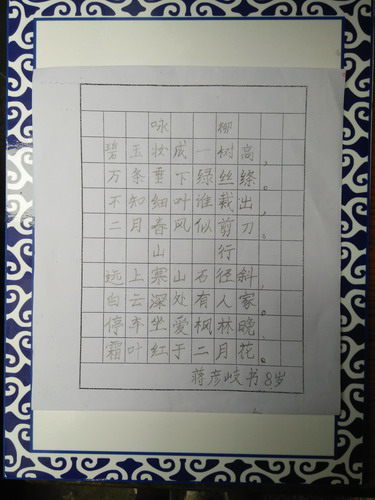 咏柳
碧玉妆成一树高，
万条垂下绿丝绦。
不知细叶谁裁出，
二月春风似剪刀。
山行
远上寒山石径斜，
白云深处有人家。
停车坐爱枫林晚，
霜叶红于二月花。
蒋彦岐书8岁